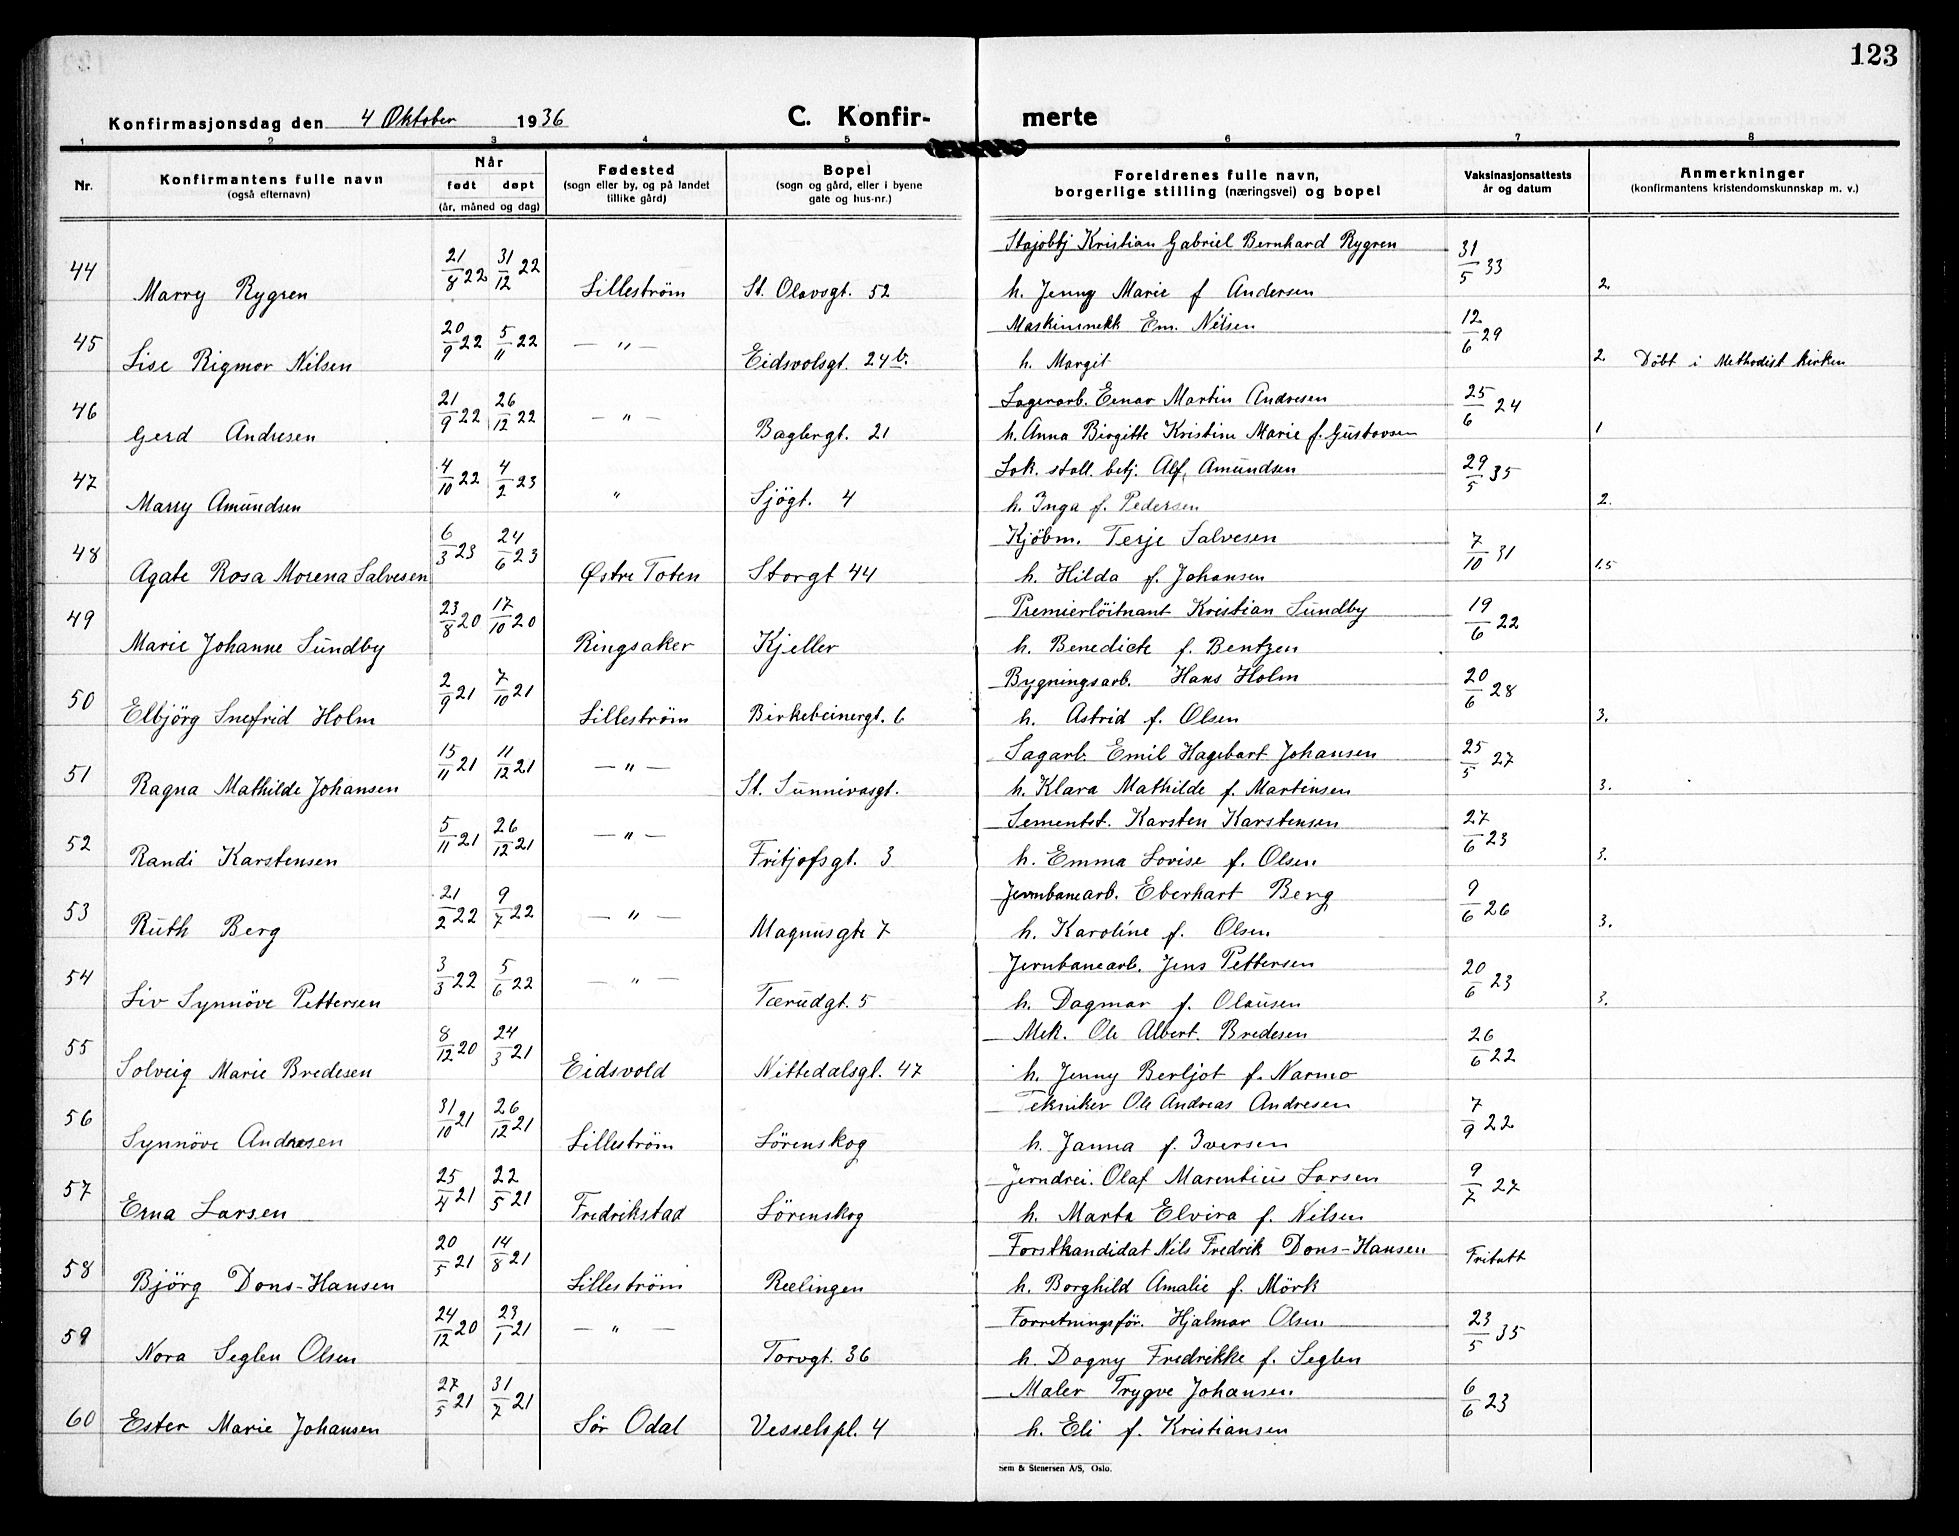 123
Konfirmasjonsdag den 4 Oktober 1936 C. Konfir- merte
1 2 3 4 5 6 7 8
Nr. Konfirmantens fulle navn (også efternavn) Når født døpt (år, måned og dag) Fødested (sogn eller by, og på landet tillike gård) Bopel (sogn og gård, eller i byene gate og hus-nr.) Foreldrenes fulle navn, borgerlige stilling (næringsvei) og bopel Vaksinasjonsattests år og datum Anmerkninger (konfirmantens kristendomskunnskap m. v.)
44 Marry Rygren 21/8 22 31/12 22 Lilleström St. Olavsgt. 52 Kristian Gabriel Bernhard Rygren 31/5 33
h. Jenny Marie f Andersen 2.
45 Lise Rigmor Nilsen 20/9 22 5/11 22 — " — Eidsvolsgt. 24b. Maskinmekk Em. Nilsen 12/6 29
h. Margit 2. Döbt i Methodist kirken
46 Gerd Andresen 21/9 22 26/12 22 — " — Baglergt. 21 Lagerarb. Einar Martin Andresen 25/6 24
h. Anna Birgitte Kristine Marie f. Gustavsen 1
47 Marry Amundsen 4/10 22 4/2 23 " Sjögt. 4 Lok. stall. betj. Alf Amundsen 29/5 35
h. Inga f. Pedersen 2.
48 Agate Rosa Morena Salvesen 6/3 23 24/6 23 Østre Toten Storgt 44 Kjöbm. Terje Salvesen 7/10 31
h. Hilda f. Johansen 1.5
49 Marie Johanne Sundby 23/8 20 17/10 20 Ringsaker Kjeller Premierlöitnant Kristian Sundby 19/6 22
h. Benedicte f. Bentzen
50 Elbjörg Snefrid Holm 2/9 21 7/10 21 Lilleström Birkebeinergt. 6 Bygningsarb. Hans Holm 20/6 28
h. Astrid f. Olsen 3.
51 Ragna Mathilde Johansen 15/11 21 11/12 21 — " — St. Sunnivasgt. Sagarb. Emil Hagebart Johansen 25/5 27
h. Klara Mathilde f. Martinsen 3.
52 Randi Karstensen 5/11 21 26/12 21 — " — Fritjofsgt. 3 Sementst. Karsten Karstensen 27/6 23
h. Emma Lovise f. Olsen 3.
53 Ruth Berg 21/2 22 9/7 22 — " — Magnusgte 7 Jernbanearb. Eberhart Berg 9/6 26
h. Karoline f. Olsen 3.
54 Liv Synnöve Pettersen 3/3 22 5/6 22 — " — Tærudgt. 5 Jernbanearb. Jens Pettersen 20/6 23
h. Dagmar f. Olausen 3.
55 Solveig Marie Bredesen 8/12 20 24/3 21 Eidsvold Nittedalsgt. 47 Mek. Ole Albert Bredesen 26/6 22
h. Jenny Berljot f. Narmo
56 Synnöve Andresen 31/10 21 26/12 21 Lilleström Lörenskog Tekniker Ole Andreas Andresen 7/9 22
h. Janna f. Iversen
57 Erna Larsen 25/4 21 22/5 21 Fredrikstad Lörenskog Jerndrei. Olaf Marentius Larsen 9/7 27
h. Marta Elvira f. Nilsen
58 Björg Dons-Hansen 20/5 21 14/8 21 Lilleström Rælingen Forstkandidat Nils Fredrik Dons-Hansen Fritatt
h. Borghild Amalie f. Mörk
59 Nora Seglen Olsen 24/12 20 23/1 21 — " — Torvgt. 36 Forretningsför. Hjalmar Olsen 23/5 35
h. Dagny Fredrikke f. Seglen
60 Ester Marie Johansen 27/5 21 31/7 21 Sör Odal Vesselspl. 4 Maler Trygve Johansen 6/6 23
h. Eli f. Kristiansen
Sem & Stenersen A/S, Oslo.